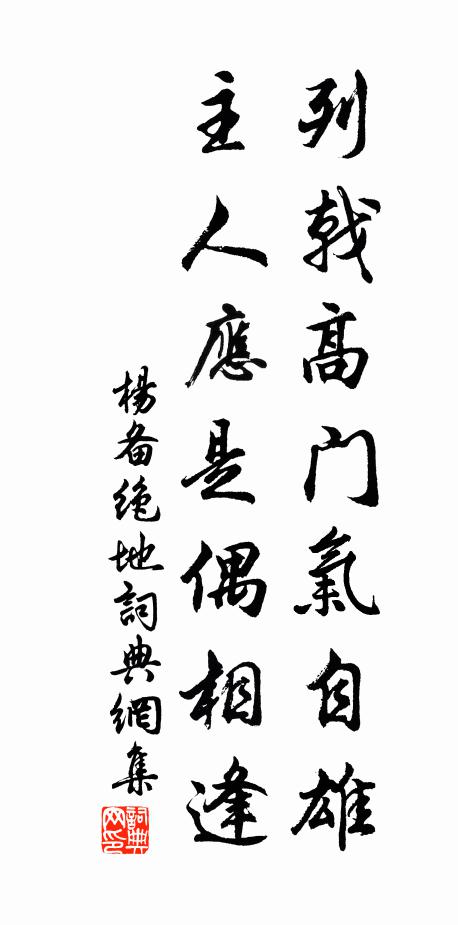 列戟高门氣自雄
主人應是偶相逢
楊备绝地詞典網集
詞典网印